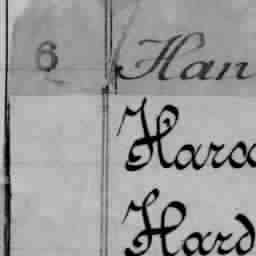 6 Han
Haro
Hard